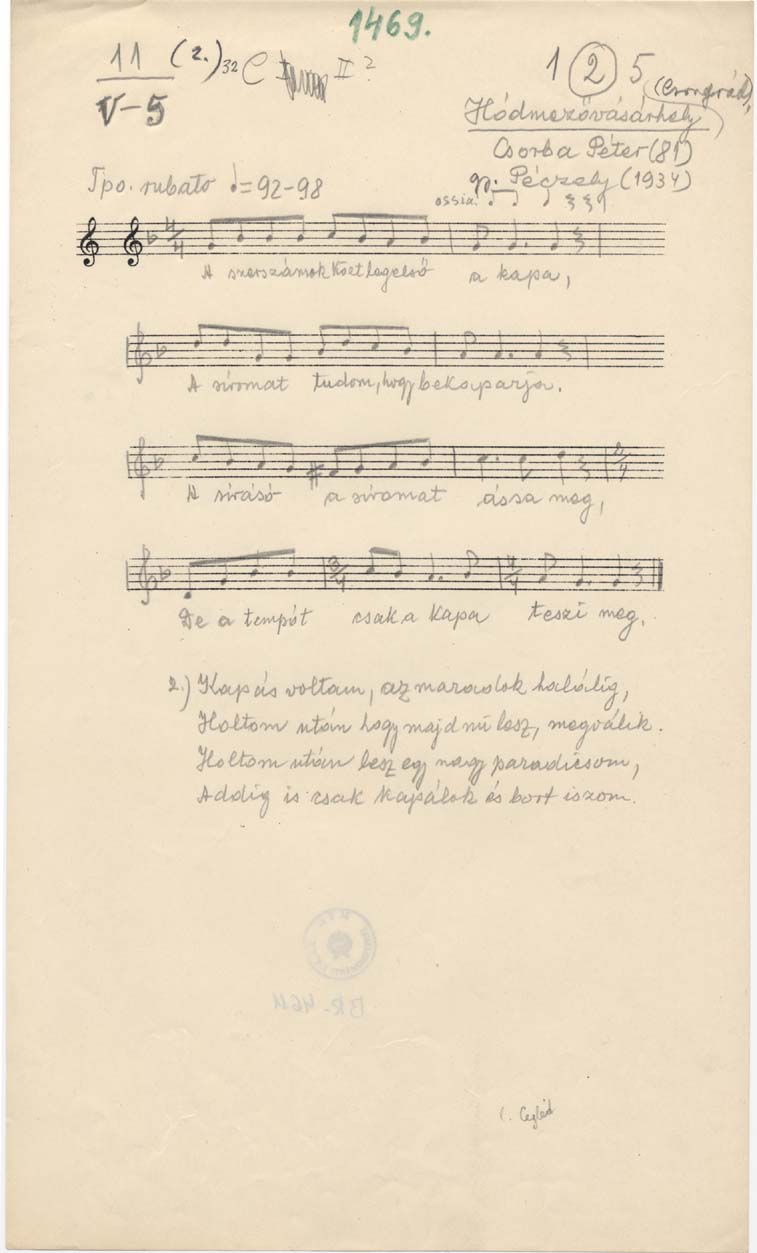 1469.
11 (2.) 32 C II ?
V-5
1 2 5
(Csongrád),
Hódmezővásárhely
Csorba Péter (81)
gy. Péczely (1934)
Tpo. rubato ♩=92-98
ossia:
A szerszámok közt legelső a kapa,
A síromat tudom, hogy bekaparja.
A sírásó a síromat ássa meg,
De a tempót csak a kapa teszi meg.
2.) Kapás voltam, az maradok halálig,
Holtom után hogy majd mű lesz, megválik.
Holtom után lesz egy nagy paradicsom,
Addig is csak kapálok és bort iszom.
BR-464
Cegléd